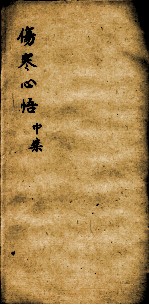 傷寒心悟
中集